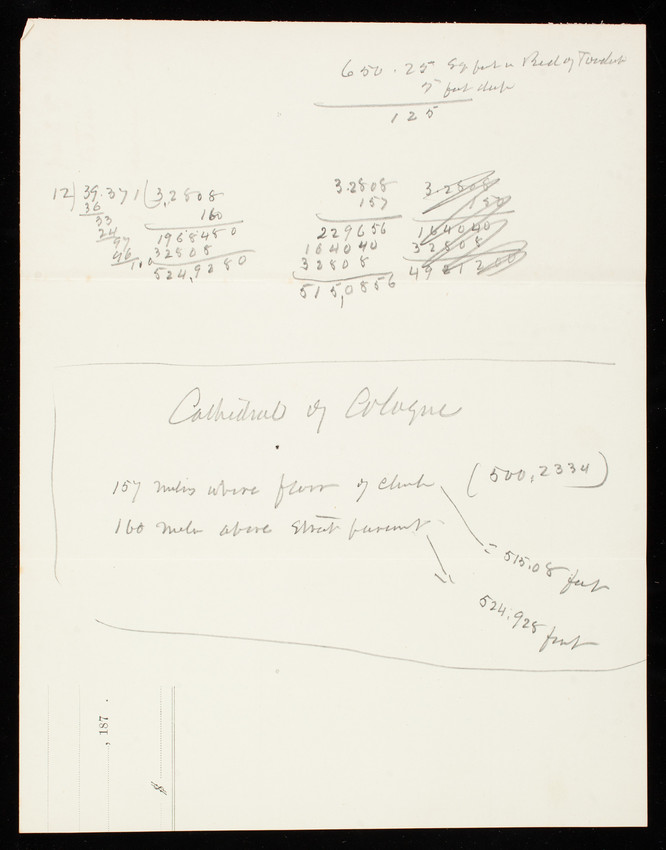 650.25 Sq feet in Bed of
5 feet deep
125
12) 39.371 (3,2808
36
33
24
97
96
100
160
1968480
32808
524,9280
3.2808
157
229656
164040
32808
515,0856
3.2808
150
164040
32808
4921200
Cathedral of Cologne
157 metres above floor of church (500,2334)
160 metres above Street pavement
= 515.08 feet
=
524.928 feet
, 187 .